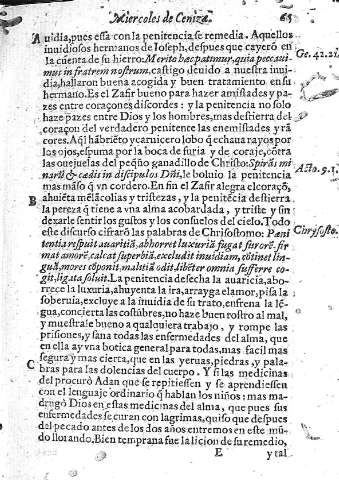 Miercoles de Ceniza. 65
A uidia, pues essa con la penitencia se remedia. Aquellos
inuidiosos hermanos de Ioseph, despues que cayerō en
la cuenta de su hierro: Merito hæc patimur, quia peccaui- Ge. 42.21.
mus in fratrem nostrum, castigo deuido a nuestra inui
dia, hallaron buena acogida y buen tratamiento en su
hermano. Es el Zafir bueno para hazer amistades y pa
zes entre coraçones discordes: y la penitencia no solo
haze pazes entre Dios y los hombres, mas destierra del
coraçon del verdadero penitente las enemistades y rā
cores. Aql hābriēto y carnicero lobo q echaua rayos por
los ojos, espuma por la boca de furia y de coraje, cōtra
las ouejuelas del peqño ganadillo de Christo: Spirās mi Acto. 9.1.
narū & cædis in discipulos Dñi, le boluio la penitencia
mas māso q vn cordero. En fin el Zafir alegra el coraçō,
B ahuiēta melācolias y tristezas, y la penitēcia destierra
la pereza q tiene a vna alma acobardada, y triste y sin
dexarle sentir los gustos y los consuelos del cielo. Todo
este discurso cifrarō las palabras de Chrisostomo: Pæni Chrysosto.
tentia respuit auaritiā, abhorret luxuriā fugat furorē, fir
mat amorē, calcat superbiā, excludit inuidiam, cōtinet lin-
guā, mores cōponit, malitiā odit, libēter omnia sufferre co-
git, ligata soluit. La penitencia desecha la auaricia, abo-
rrece la luxuria, ahuyenta la ira, arrayga el amor, pisa la
soberuia, excluye a la inuidia de su trato, enfrena la lē-
gua, concierta las costūbres, no haze buen rostro al mal,
y muestrale bueno a qualquiera trabajo, y rompe las
prisiones, y sana todas las enfermedades del alma, que
en ella ay vna botica general para todas, mas facil mas
segura y mas cierta, que en las yeruas, piedras, y pala-
C bras para las dolencias del cuerpo. Y si las medicinas
del procurò Adan que se repitiessen y se aprendiessen
con el lenguaje ordinario q hablan los niños: mas ma-
drugò Dios en estas medicinas del alma, que pues sus
enfermedades se curan con lagrimas, quiso que despues
del pecado antes de los dos años entremos en este mū
do llorando. Bien temprana fue la licion de su remedio,
E y tal